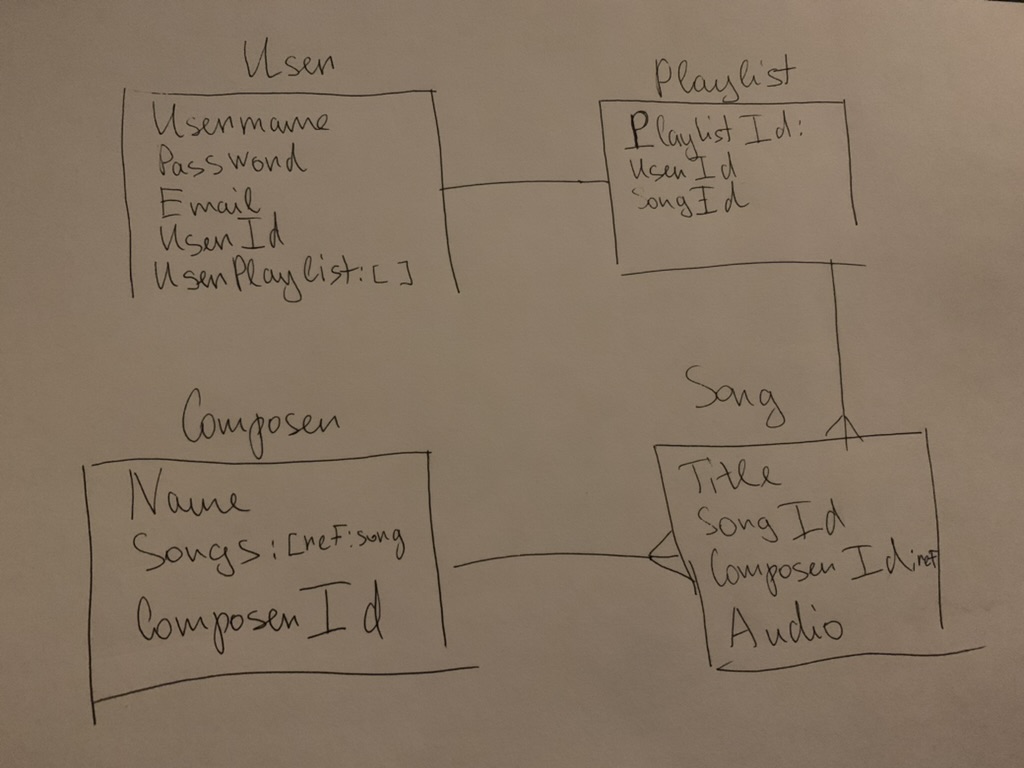 User
Username
Password
Email
User Id
UserPlaylist: [ ]
Playlist
Playlist Id:
User Id
Song Id
Composer
Name
Songs: [ref: song
Composer Id
Song
Title
Song Id
Composer Id: ref
Audio